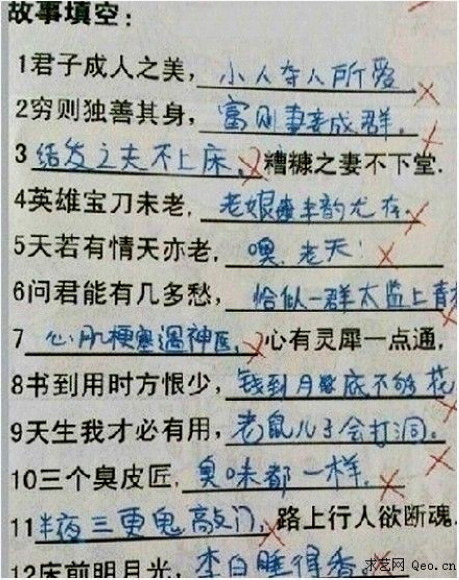 故事填空:
1君子成人之美,小人夺人所爱
2穷则独善其身,富则妻妾成群.
3结发之夫不上床、糟糠之妻不下堂.
4英雄宝刀未老,老娘半韵尤存
5天若有情天亦老,噢.老天!
6问君能有几多愁,恰似一群太监上青
7心肌梗塞遇神医、心有灵犀一点通,
8书到用时方恨少,钱到月底不够花
9天生我才必有用,老鼠儿子会打洞。
10三个臭皮匠,臭味都一样.
11半夜三更鬼敲门,路上行人欲断魂.
12床前明月光,李白睡得香.
求艺网 Qeo.cn